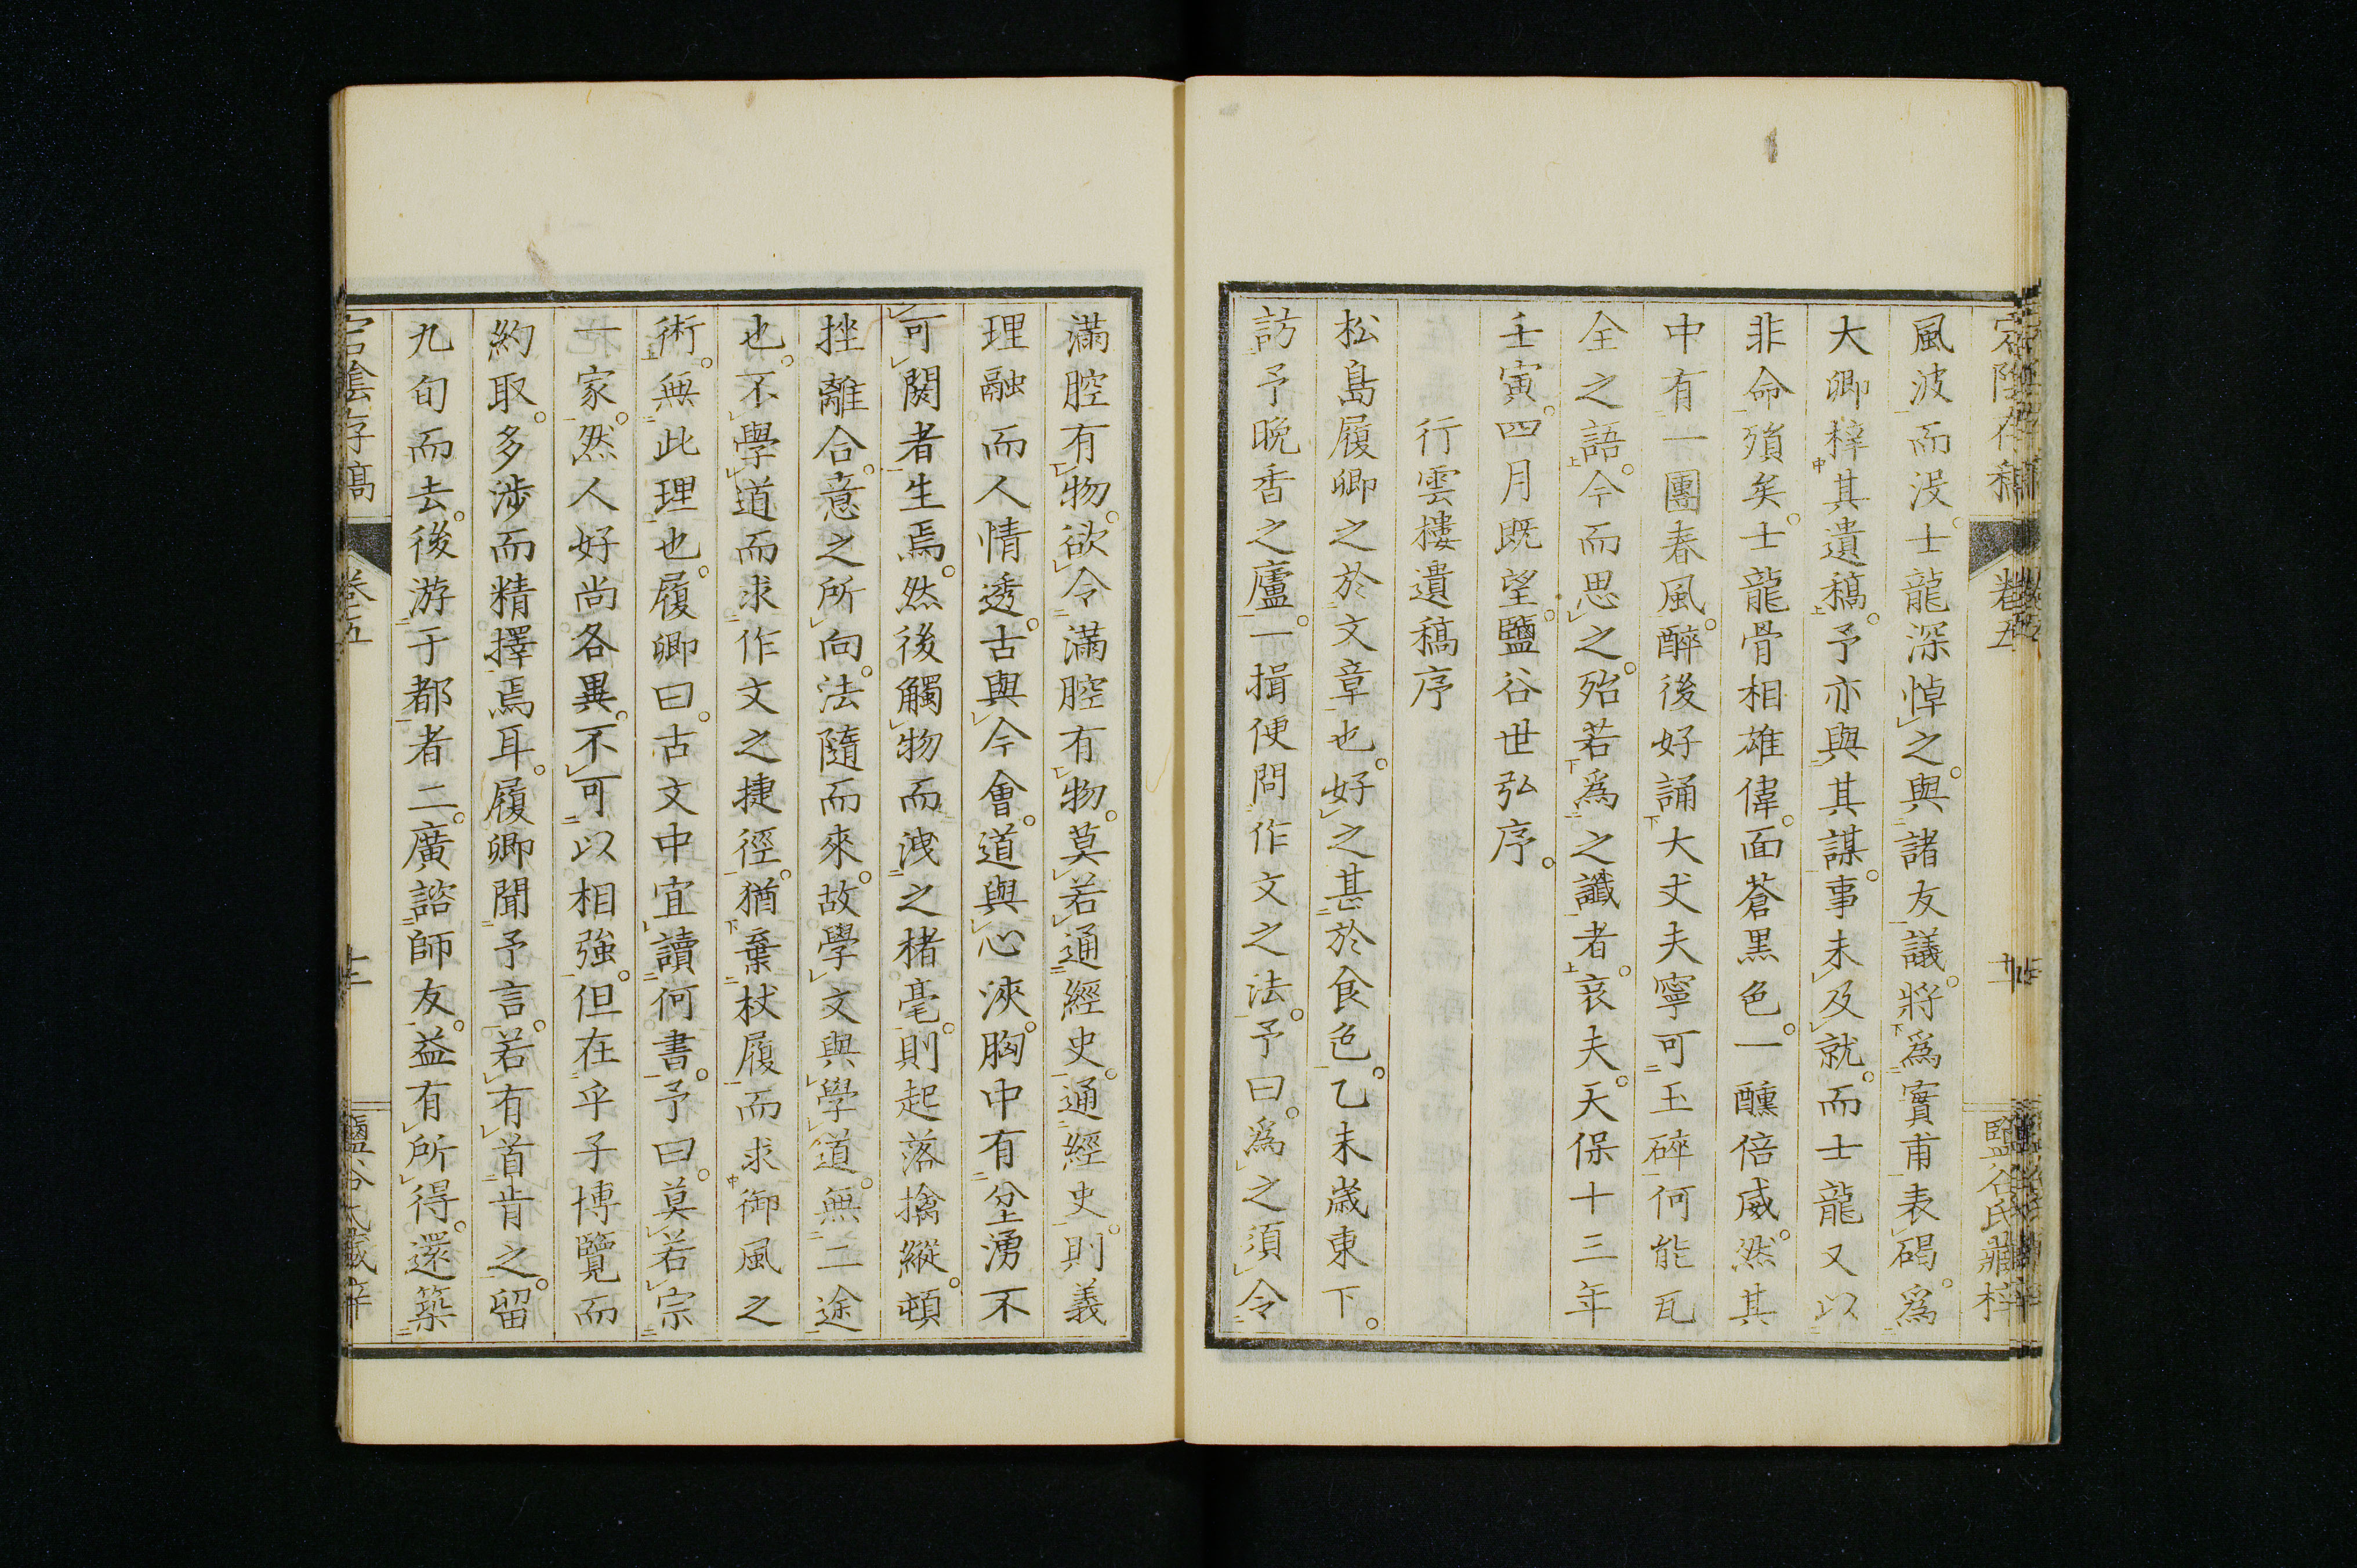 風波而没。士龍深悼之。與諸友議。將爲實甫表碣。爲
大卿梓其遺稿。予亦與其謀。事未及就。而士龍又以
非命殞矣。士龍骨相雄偉。面蒼黒色。一醺倍威。然其
中有一團春風。醉後好誦大丈夫寧可玉碎何能瓦
全之語。今而思之。殆若爲之讖者。哀夫。天保十三年
壬寅。四月既望。鹽谷世弘序。
行雲樓遺稿序
松島履卿之於文章也。好之甚於食色。乙未歳東下。
訪予晩香之廬。一揖便問作文之法。予曰。爲之須令
滿腔有物。欲令滿腔有物。莫若通經史。通經史。則義
理融而人情透。古與今會。道與心浹。胸中有坌湧不
可閼者生焉。然後觸物而洩之楮毫。則起落擒縱。頓
挫離合。意之所向。法隨而來。故學文與學道。無二途
也。不學道而求作文之捷徑。猶棄杖履而求御風之
術。無此理也。履卿曰。古文中宜讀何書。予曰。莫若宗
一家。然人好尚各異。不可以相強。但在乎子博覽而
約取。多渉而精擇焉耳。履卿聞予言。若有首肯之。留
九旬而去。後游于都者二。廣諮師友。益有所得。還築
宕陰存稿
卷五
鹽谷氏藏梓